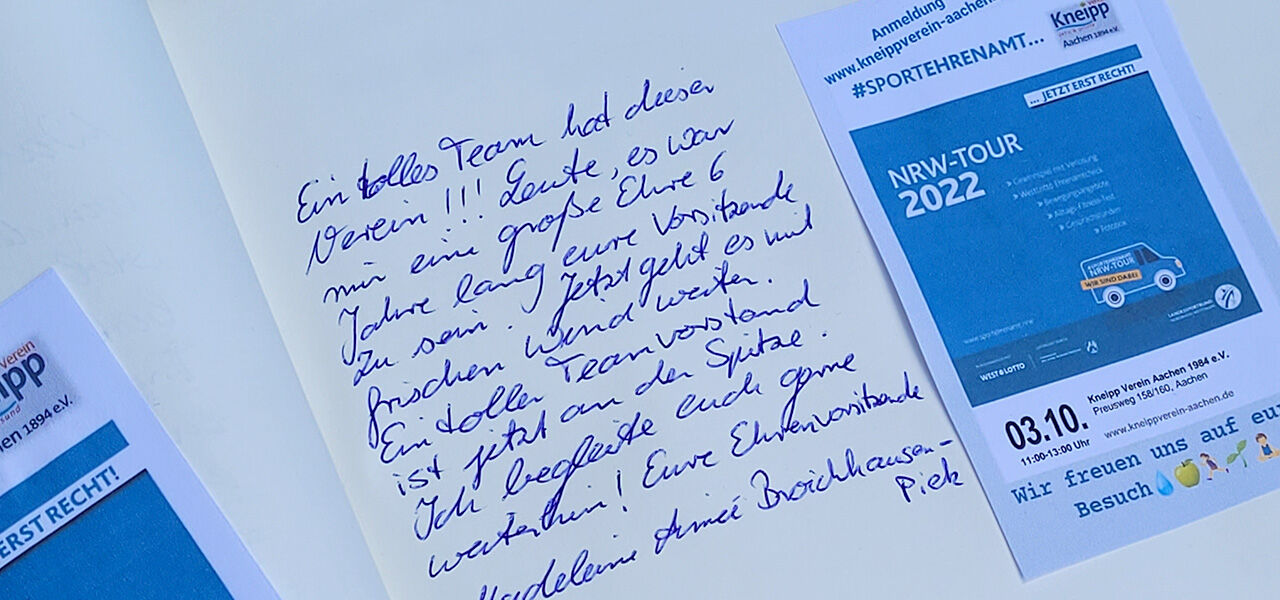 Ein tolles Team hat dieser
Verein!!! Leute, es war
mir eine große Ehre 6
Jahre lang eure Vorsitzende
zu sein. Jetzt geht es mit
frischen Wind weiter.
Ein toller Teamvorstand
ist jetzt an der Spitze.
Ich begleite euch gerne
weiterhin! Eure Ehrenvorsitzende
Madeleine Aimée Broichhausen-
Piek
Anmeldung
www.kneippverein-aachen.
Kneipp
Aachen 1894 e.V.
#SPORTEHRENAMT...
... JETZT ERST RECHT!
NRW-TOUR
2022
Gewinnspiel mit Verlosung
WestLotto Ehrenamtscheck
Bewegungsangebote
Alltags-Fitness-Test
Gesprächsrunden
Fotobox
#SPORTEHRENAMT
NRW-TOUR
WIR SIND DABEI
www.sportehrenamt.nrw
WESTLOTTO
LANDESSPORTBUND
03.10.
11:00-13:00 Uhr
Kneipp Verein Aachen 1984 e.V.
Preusweg 158/160, Aachen
www.kneippverein-aachen.de
Wir freuen uns auf eu
Besuch
Verein
ipp
sund
en 1894 e.V.
ERST RECHT!